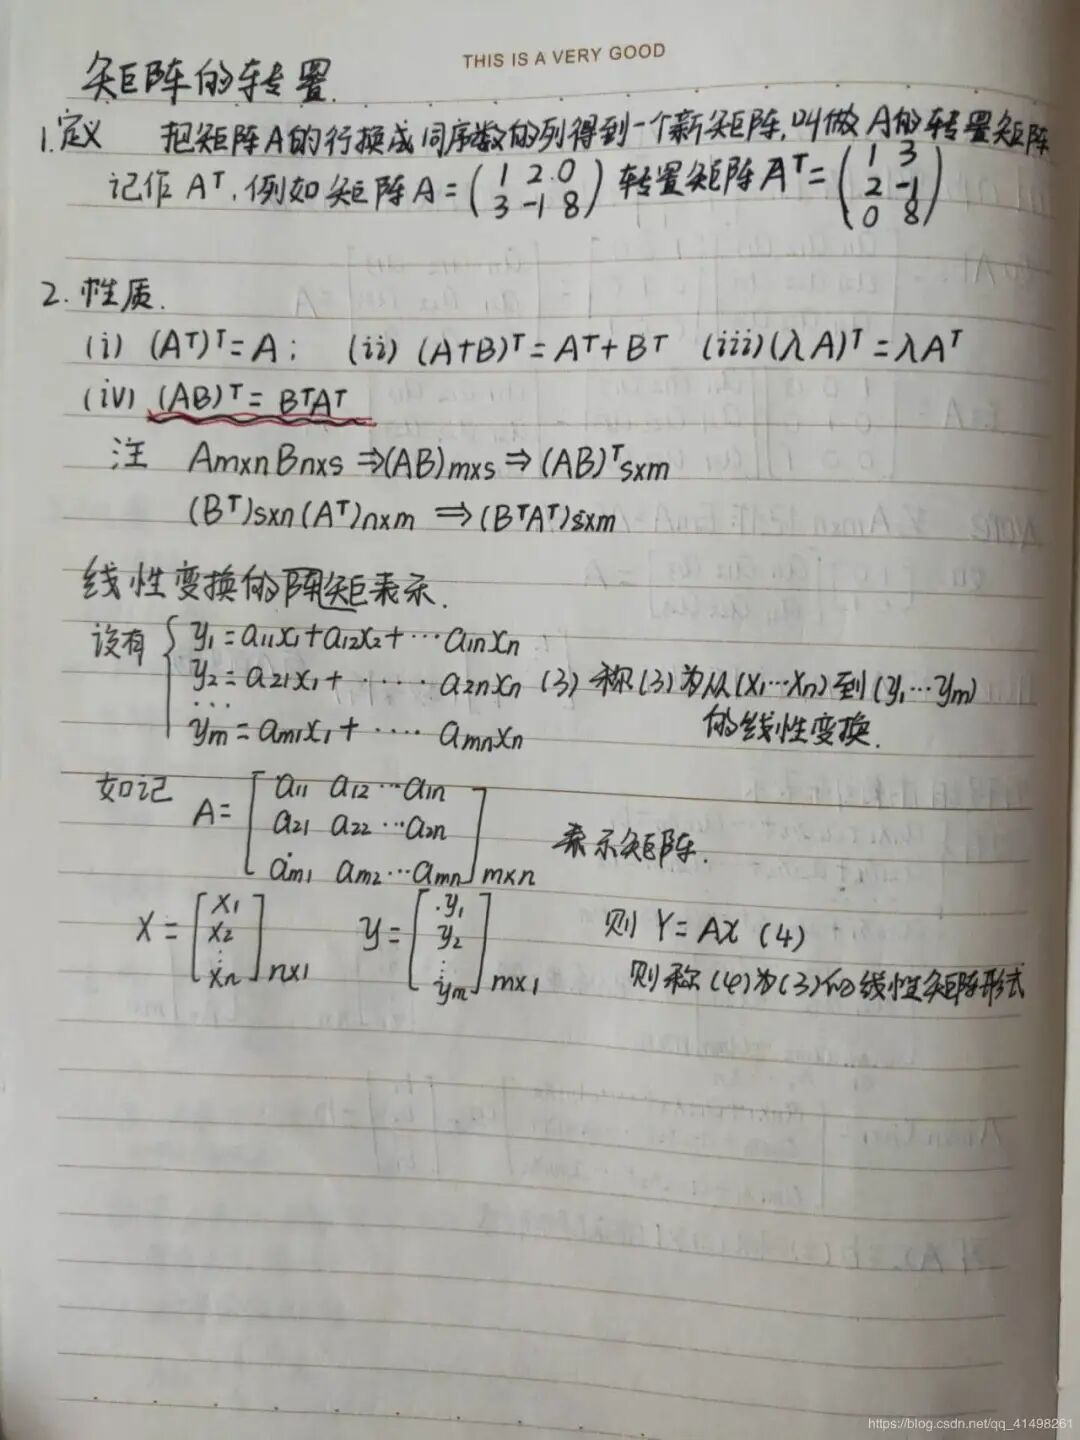 THIS IS A VERY GOOD
矩阵的转置.
1.定义 把矩阵A的行换成同序数的列得到一个新矩阵,叫做A的转置矩阵
记作 Aᵀ, 例如矩阵A=(1 2 0 / 3 -1 8) 转置矩阵Aᵀ=(1 3 / 2 -1 / 0 8)
2. 性质.
(i) (Aᵀ)ᵀ=A; (ii) (A+B)ᵀ=Aᵀ+Bᵀ (iii)(λA)ᵀ=λAᵀ
(iv) (AB)ᵀ=BᵀAᵀ
注 Am×n Bn×s ⇒(AB)m×s ⇒ (AB)ᵀs×m
(Bᵀ)s×n (Aᵀ)n×m ⇒ (BᵀAᵀ)s×m
线性变换的阵矩表示.
设有 { y₁=a₁₁x₁+a₁₂x₂+···a₁nxn
y₂=a₂₁x₁+ ····· a₂nxn (3) 称(3)为从(x₁···xn)到(y₁···ym)
···
的线性变换.
ym=am₁x₁+ ···· amnxn
如记 A=[a₁₁ a₁₂ ···a₁n / a₂₁ a₂₂ ···a₂n / am₁ am₂ ···amn]m×n 表示矩阵.
X=[x₁ x₂ ⋮ xn]n×1 y=[y₁ y₂ ⋮ ym]m×1 则 Y=AX (4)
则称(4)为(3)的线性矩阵形式
https://blog.csdn.net/qq_41498261